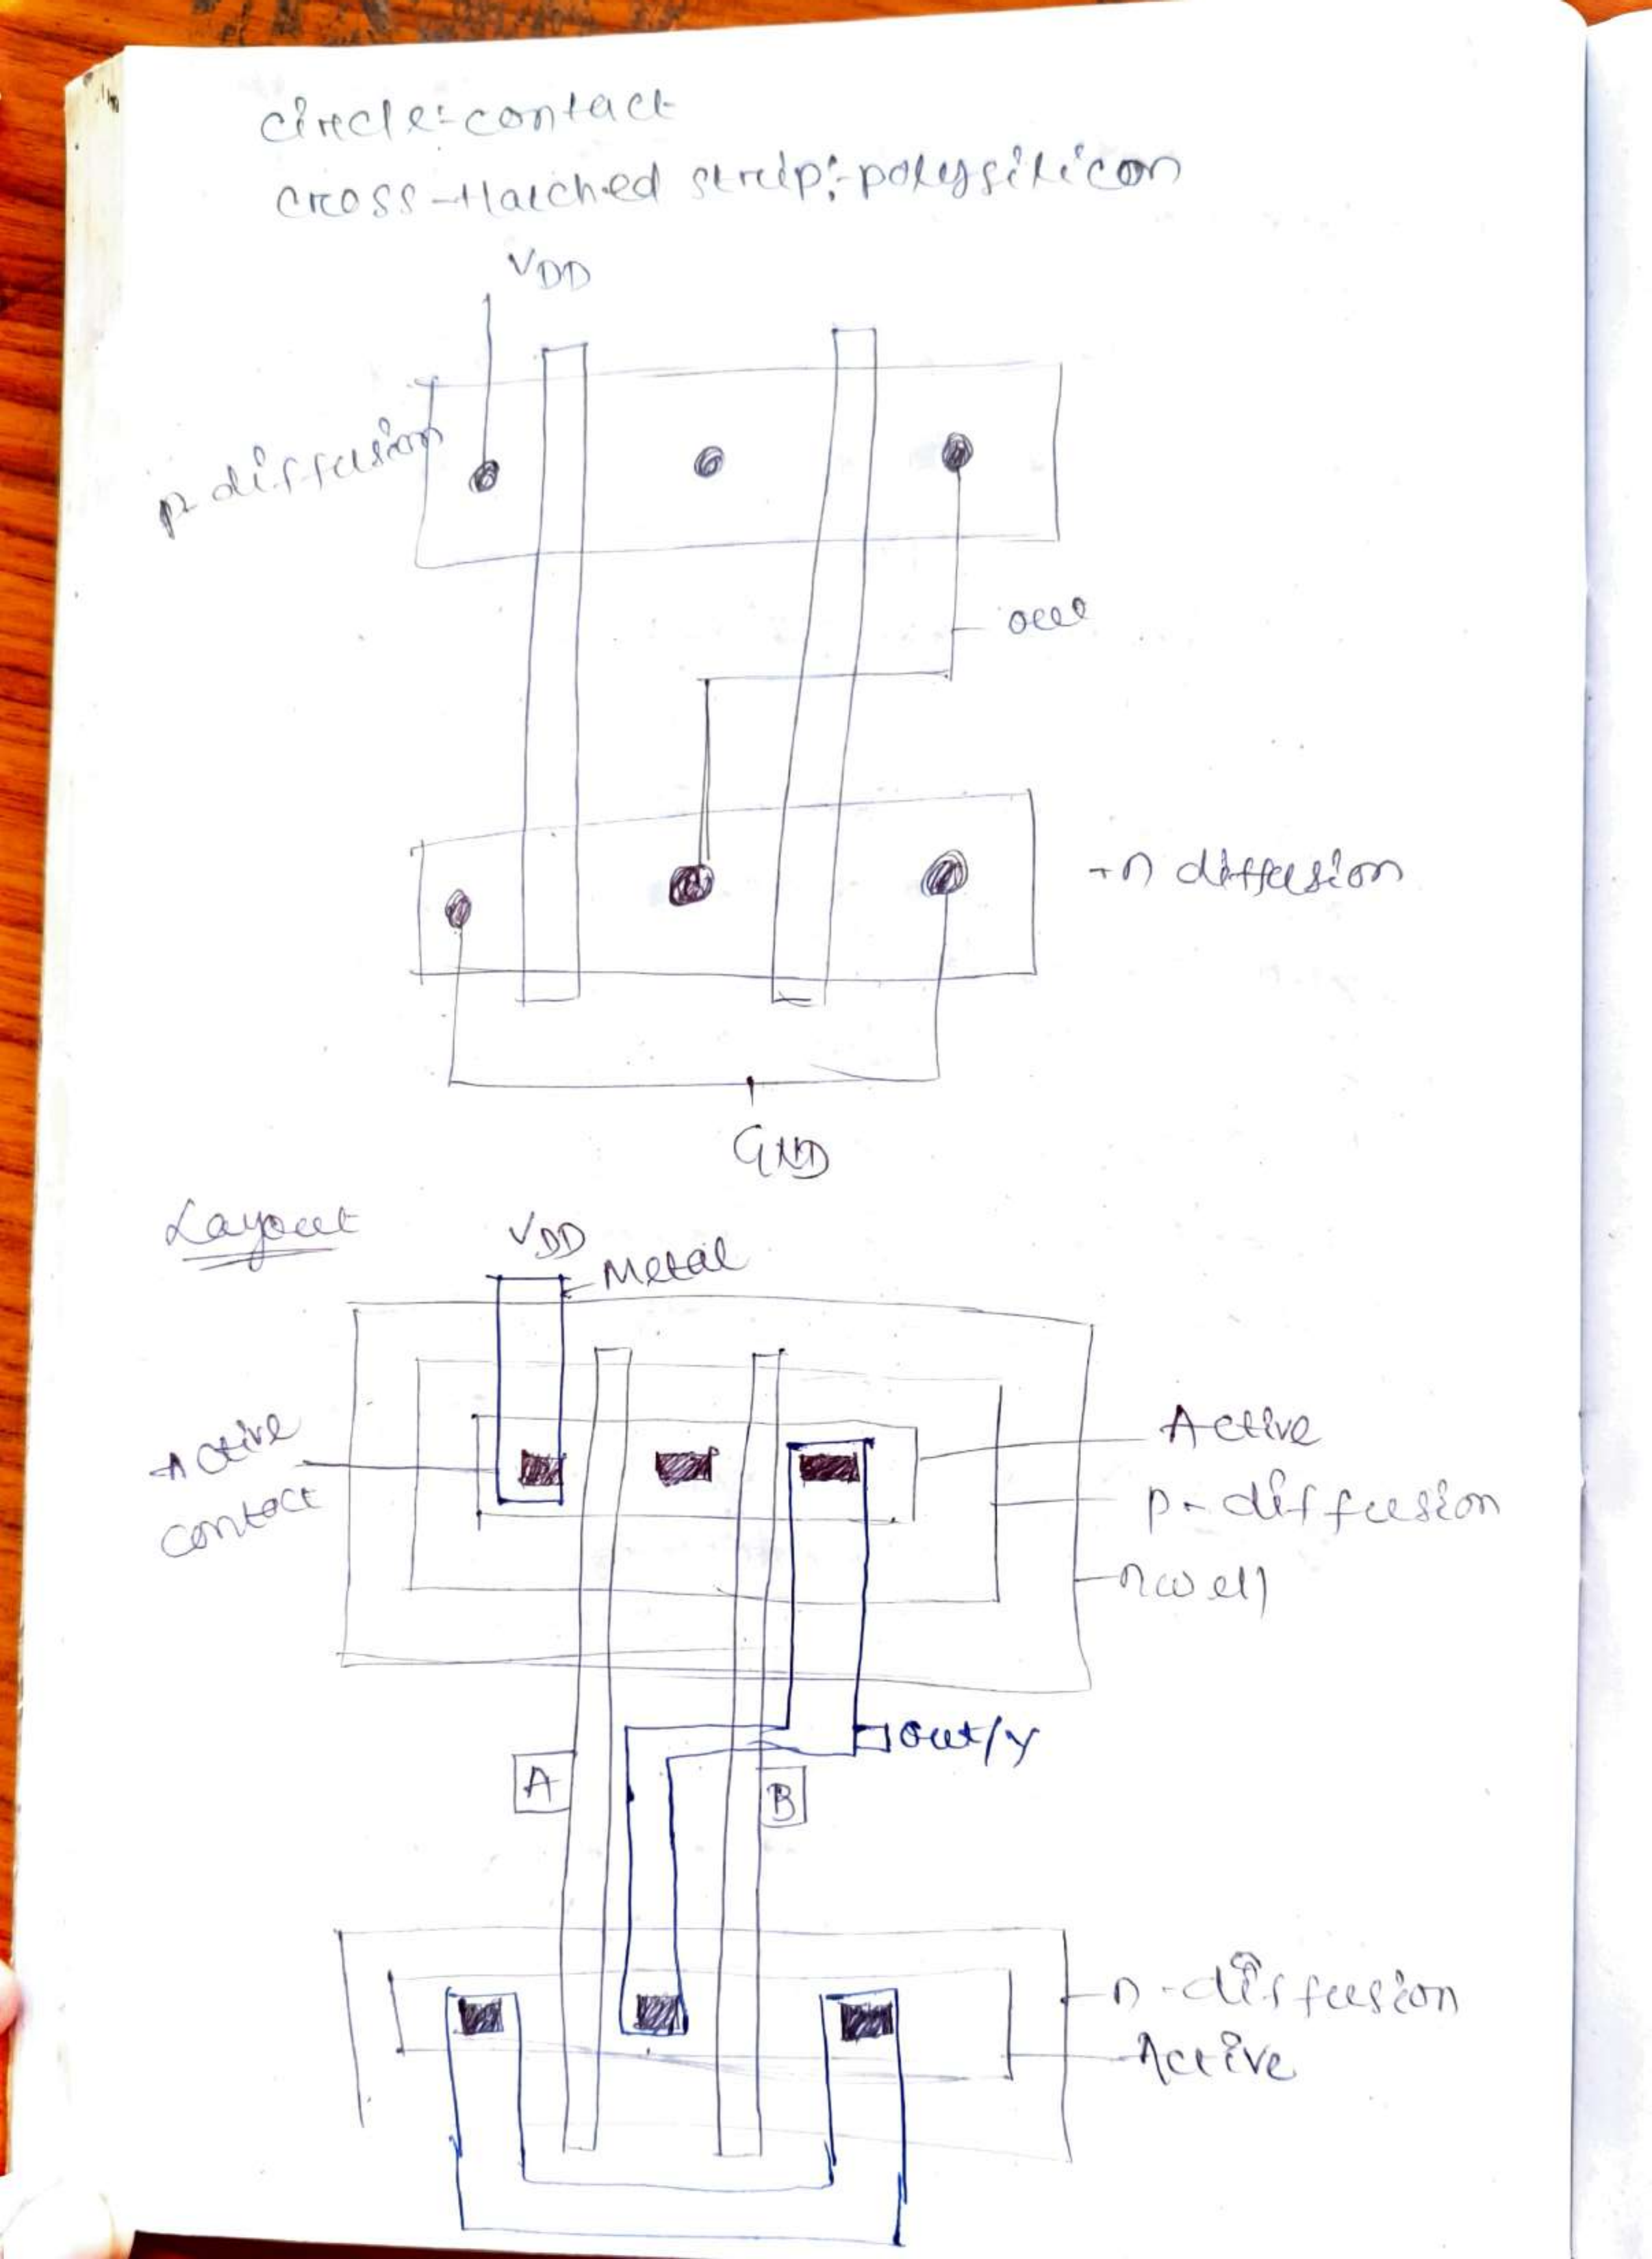 circle:-contact
cross-Hatched strip:-polysilicon
VDD
p-diffusion
out
n diffusion
GND
Layout
VDD
Metal
Active
contact
Active
p-diffusion
nwell
out/y
A
B
n-diffusion
Active